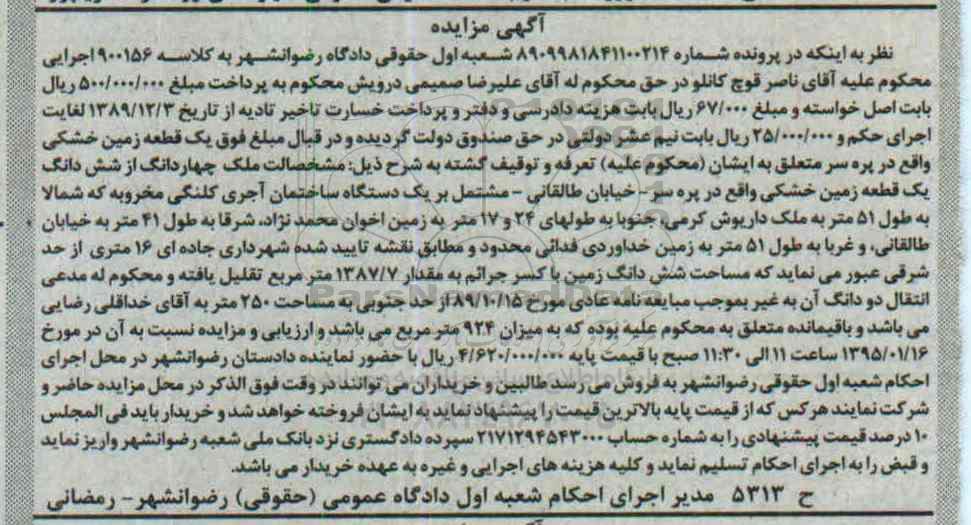 آگهی مزایده
نظر به اینکه در پرونده شماره ۸۹۰۹۹۸۱۸۴۱۱۰۰۲۱۴ شعبه اول حقوقی دادگاه رضوانشهر به کلاسه ۹۰۰۱۵۶ اجرایی
محکوم علیه آقای ناصر قوچ کانلو در حق محکوم له آقای علیرضا صمیمی درویش محکوم به پرداخت مبلغ ۵۰۰/۰۰۰/۰۰۰ ریال
بابت اصل خواسته و مبلغ ۶۷/۰۰۰ ریال بابت هزینه دادرسی و دفتر و پرداخت خسارت تاخیر تادیه از تاریخ ۱۳۸۹/۱۲/۳ لغایت
اجرای حکم و ۲۵/۰۰۰/۰۰۰ ریال بابت نیم عشر دولتی در حق صندوق دولت گردیده و در قبال مبلغ فوق یک قطعه زمین خشکی
واقع در پره سر متعلق به ایشان (محکوم علیه) تعرفه و توقیف گشته به شرح ذیل: مشخصالت ملک چهاردانگ از شش دانگ
یک قطعه زمین خشکی واقع در پره سر - خیابان طالقانی - مشتمل بر یک دستگاه ساختمان آجری کلنگی مخروبه که شمالا
به طول ۵۱ متر به ملک داریوش کرمی، جنوبا به طولهای ۲۴ و ۱۷ متر به زمین اخوان محمد نژاد، شرقا به طول ۴۱ متر به خیابان
طالقانی، و غربا به طول ۵۱ متر به زمین خداوردی فدائی محدود و مطابق نقشه تایید شده شهرداری جاده ای ۱۶ متری از حد
شرقی عبور می نماید که مساحت شش دانگ زمین با کسر جرائم به مقدار ۱۳۸۷/۷ متر مربع تقلیل یافته و محکوم له مدعی
انتقال دو دانگ آن به غیر بموجب مبایعه نامه عادی مورخ ۸۹/۱۰/۱۵ از حد جنوبی به مساحت ۲۵۰ متر به آقای خداقلی رضایی
می باشد و باقیمانده متعلق به محکوم علیه بوده که به میزان ۹۲۴ متر مربع می باشد و ارزیابی و مزایده نسبت به آن در مورخ
۱۳۹۵/۰۱/۱۶ ساعت ۱۱ الی ۱۱:۳۰ صبح با قیمت پایه ۴/۶۲۰/۰۰۰/۰۰۰ ریال با حضور نماینده دادستان رضوانشهر در محل اجرای
احکام شعبه اول حقوقی رضوانشهر به فروش می رسد طالبین و خریداران می توانند در وقت فوق الذکر در محل مزایده حاضر و
شرکت نمایند هرکس که از قیمت پایه بالاترین قیمت را پیشنهاد نماید به ایشان فروخته خواهد شد و خریدار باید فی المجلس
۱۰ درصد قیمت پیشنهادی را به شماره حساب ۲۱۷۱۲۹۴۵۴۳۰۰۰ سپرده دادگستری نزد بانک ملی شعبه رضوانشهر واریز نماید
و قبض را به اجرای احکام تسلیم نماید و کلیه هزینه های اجرایی و غیره به عهده خریدار می باشد.
ح ۵۳۱۳ مدیر اجرای احکام شعبه اول دادگاه عمومی (حقوقی) رضوانشهر - رمضانی